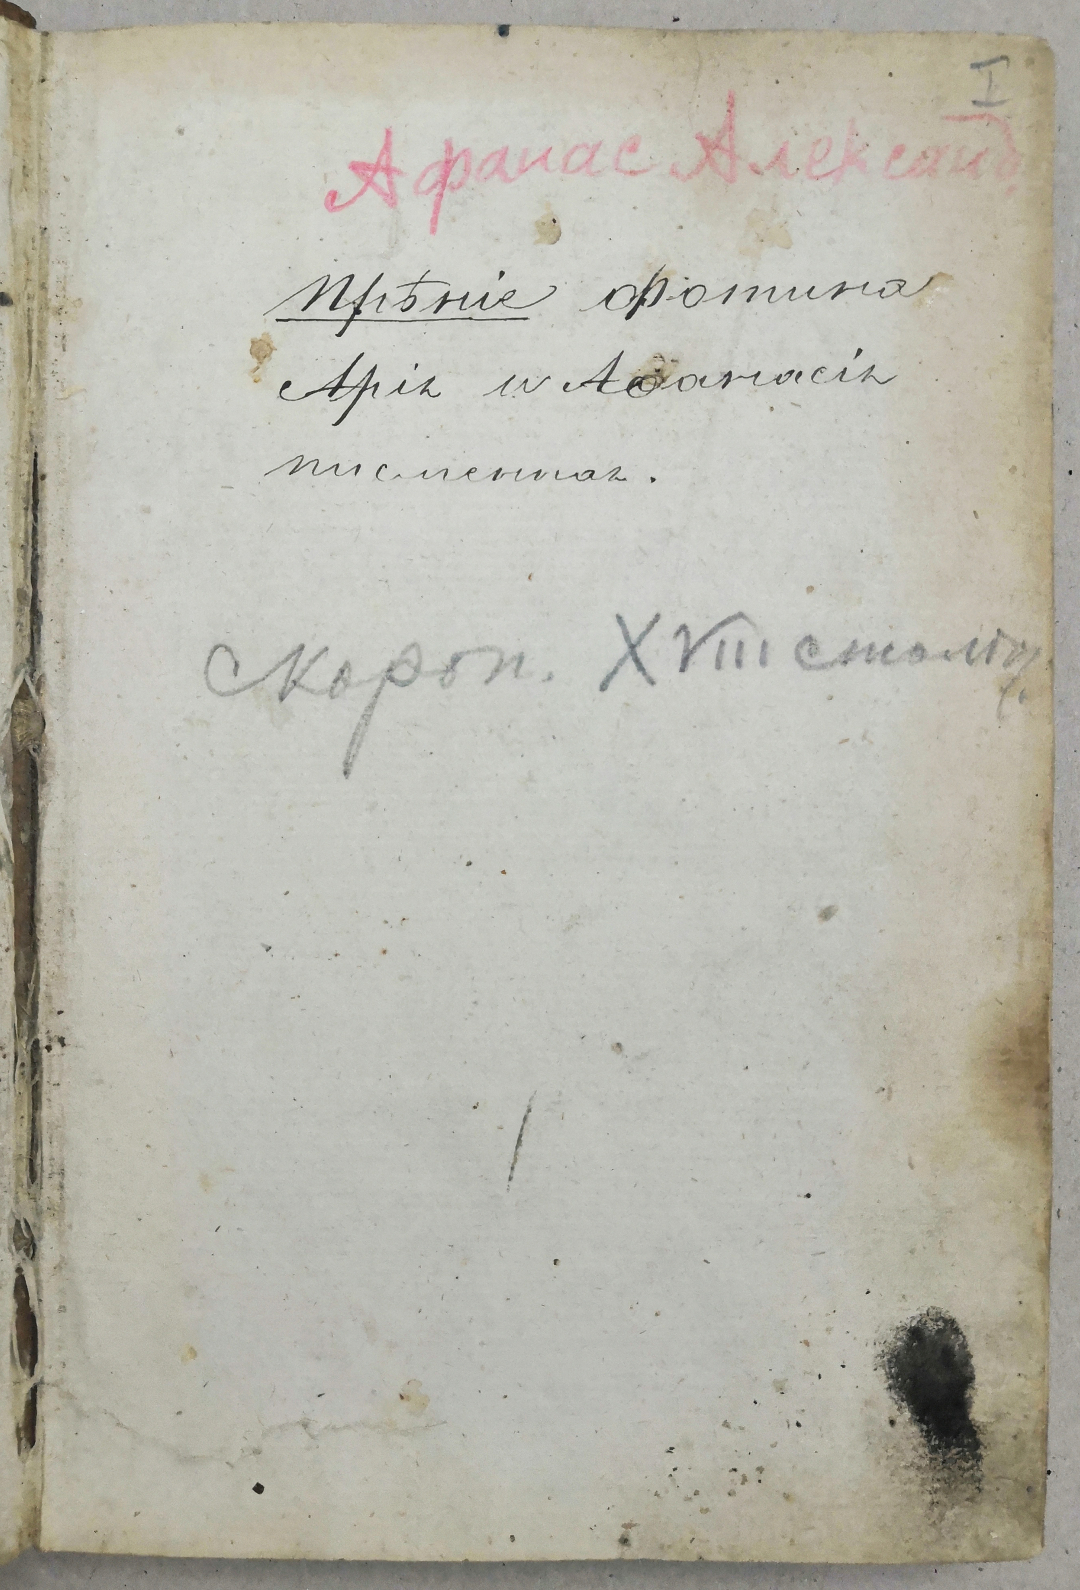 I
Афанас Александ.
Прѣніе Фотина
Арія и Аѳанасія
писменная.
Скороп. XVIII столѣт.